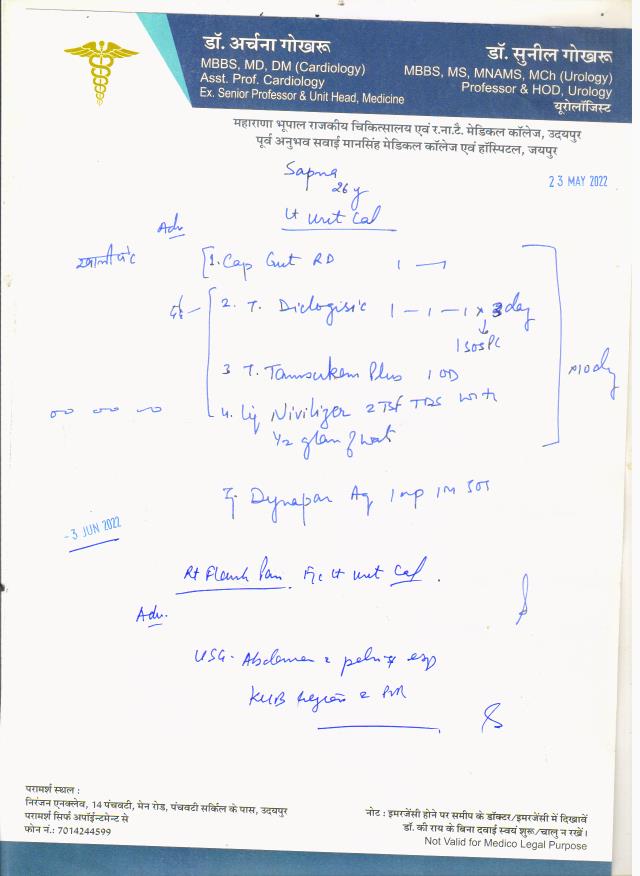 डॉ. अर्चना गोखरू
MBBS, MD, DM (Cardiology)
Asst. Prof. Cardiology
Ex. Senior Professor & Unit Head, Medicine
डॉ. सुनील गोखरू
MBBS, MS, MNAMS, MCh (Urology)
Professor & HOD, Urology
यूरोलॉजिस्ट
महाराणा भूपाल राजकीय चिकित्सालय एवं र.ना.टै. मेडिकल कॉलेज, उदयपुर
पूर्व अनुभव सवाई मानसिंह मेडिकल कॉलेज एवं हॉस्पिटल, जयपुर
Sapna
26 y
23 MAY 2022
Lt uret Cal
Adv
खाली पेट
1. Cap Gut RD 1 —
2. T. Diclogisic 1 — 1 — 1 x 3 day
1 SOS PC
3 T. Tamsukem Plus 1 OD
x 10 day
4. Liq Nivilizer 2 TSF TDS with
1/2 glass of wat
Inj. Dynapar Aq 1 amp IM SOS
-3 JUN 2022
Rt Flank Pain F/c Lt uret Cal.
Adv.
USG - Abdomen & pelvis esp
KUB region & PVR
परामर्श स्थल :
निरंजन एनक्लेव, 14 पंचवटी, मेन रोड, पंचवटी सर्किल के पास, उदयपुर
परामर्श सिर्फ अपॉईन्टमेन्ट से
फोन नं.: 7014244599
नोट : इमरजेंसी होने पर समीप के डॉक्टर/इमरजेंसी में दिखावें
डॉ. की राय के बिना दवाई स्वयं शुरू/चालु न रखें।
Not Valid for Medico Legal Purpose